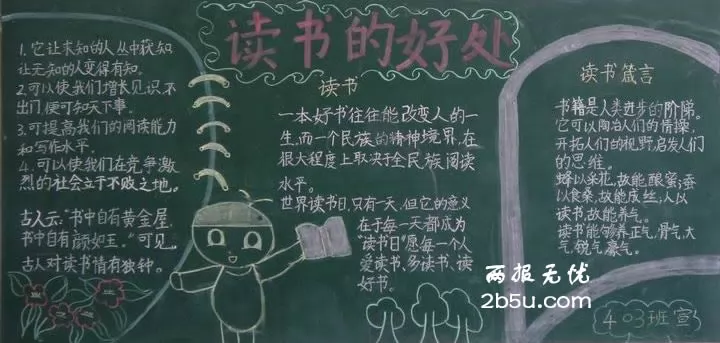 读书的好处
1.它让未知的人从中获知
让无知的人变得有知。
2.可以使我们增长见识,不
出门便可知天下事。
3.可提高我们的阅读能力
和写作水平。
4.可以使我们在竞争激
烈的社会立于不败之地。
古人云:“书中自有黄金屋
书中自有颜如玉。”可见,
古人对读书情有独钟。
读书
一本好书往往能改变人的一
生,而一个民族的精神境界,在
很大程度上取决于全民族阅读
水平。
世界读书日,只有一天,但它的意义
在于每一天都成为
“读书日”愿每一个人
爱读书、多读书、读
好书。
读书箴言
书籍是人类进步的阶梯。
它可以陶冶人们的情操,
开拓人们的视野,启发人们
的思维。
蜂以采花,故能酿蜜;蚕
以食桑,故能成丝;人以
读书,故能养气。
读书能够养正气,骨气,大
气,锐气,豪气。
两报无忧
2b5u.com
403班宣